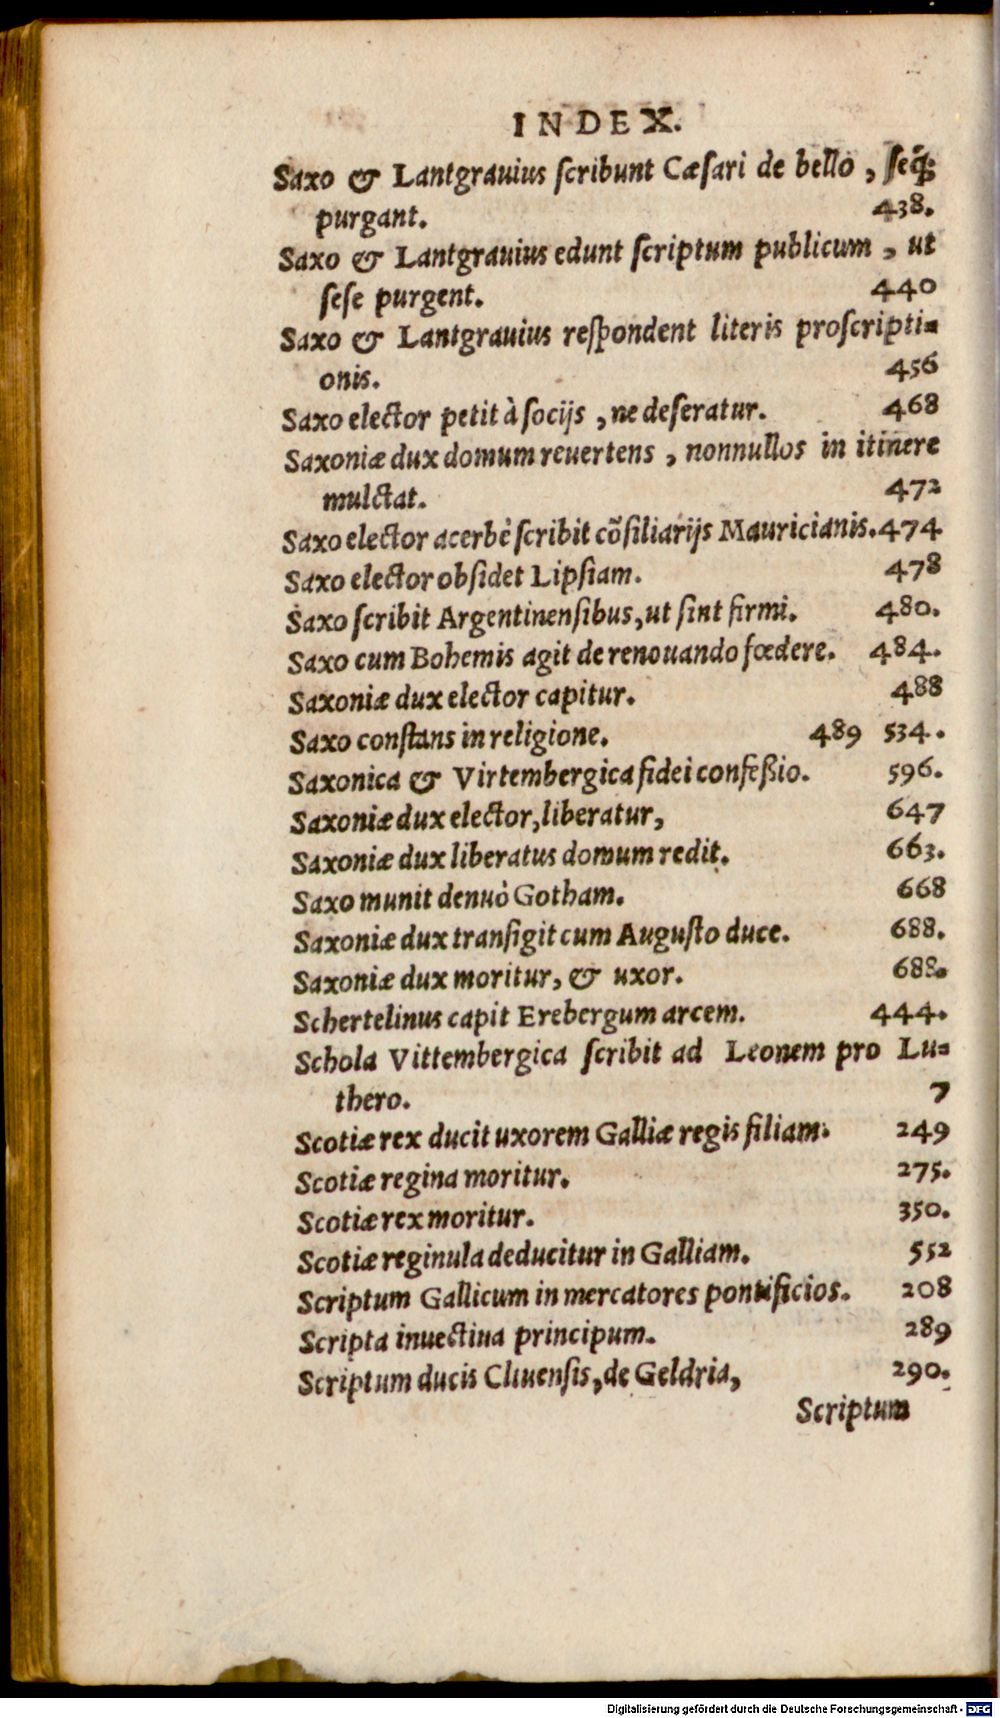 INDEX.
Saxo & Lantgrauius ſcribunt Cæſari de bello, ſeq́;
purgant. 438.
Saxo & Lantgrauius edunt ſcriptum publicum, ut
ſeſe purgent. 440
Saxo & Lantgrauius reſpondent literis proſcripti-
onis. 456
Saxo elector petit à ſocijs, ne deſeratur. 468
Saxoniæ dux domum reuertens, nonnullos in itinere
mulctat. 472
Saxo elector acerbè ſcribit cõſiliarijs Mauricianis. 474
Saxo elector obſidet Lipſiam. 478
Saxo ſcribit Argentinenſibus, ut ſint firmi. 480.
Saxo cum Bohemis agit de renouando fœdere. 484.
Saxoniæ dux elector capitur. 488
Saxo conſtans in religione. 489 534.
Saxonica & Virtembergica fidei confeßio. 596.
Saxoniæ dux elector, liberatur, 647
Saxoniæ dux liberatus domum redit. 663.
Saxo munit denuò Gotham. 668
Saxoniæ dux tranſigit cum Auguſto duce. 688.
Saxoniæ dux moritur, & uxor. 688.
Schertelinus capit Erebergum arcem. 444.
Schola Vittembergica ſcribit ad Leonem pro Lu-
thero. 7
Scotiæ rex ducit uxorem Galliæ regis filiam. 249
Scotiæ regina moritur. 275.
Scotiæ rex moritur. 350.
Scotiæ reginula deducitur in Galliam. 552
Scriptum Gallicum in mercatores pontificios. 208
Scripta inuectiua principum. 289
Scriptum ducis Cliuenſis, de Geldria, 290.
Scriptum
Digitalisierung gefördert durch die Deutsche Forschungsgemeinschaft - DFG